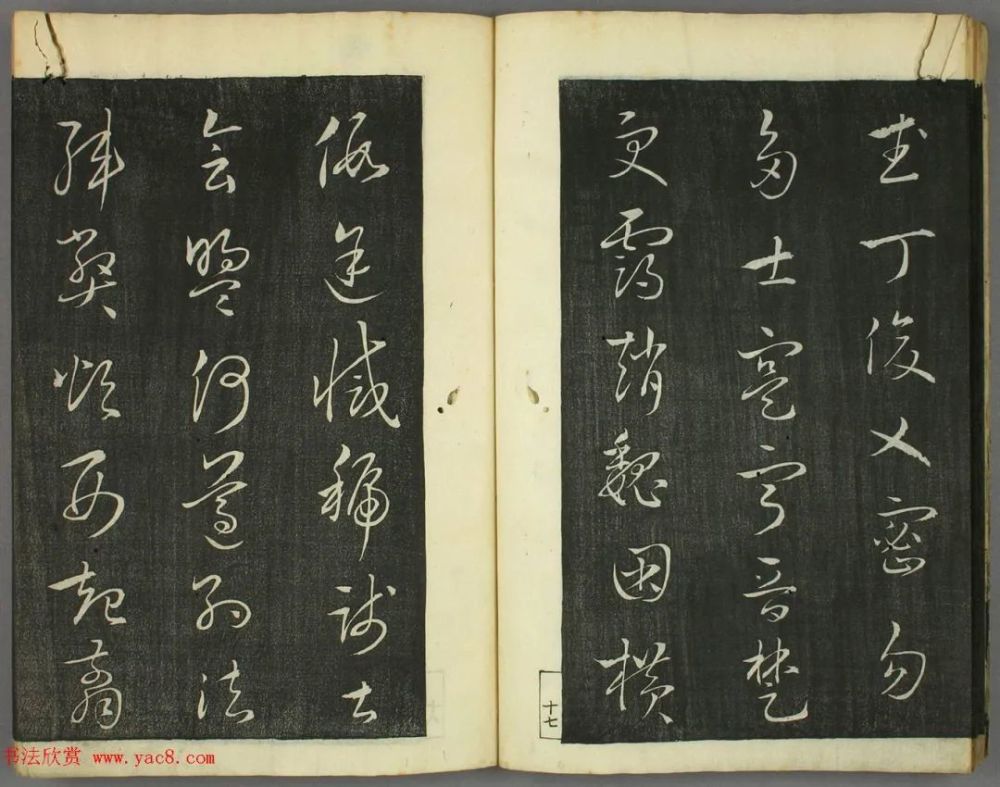 武丁俊乂密勿
多士寔寧晉楚
更霸趙魏困橫
十七
假途滅虢踐土
會盟何遵約法
韓弊煩刑起翦
书法欣赏 www.yac8.com